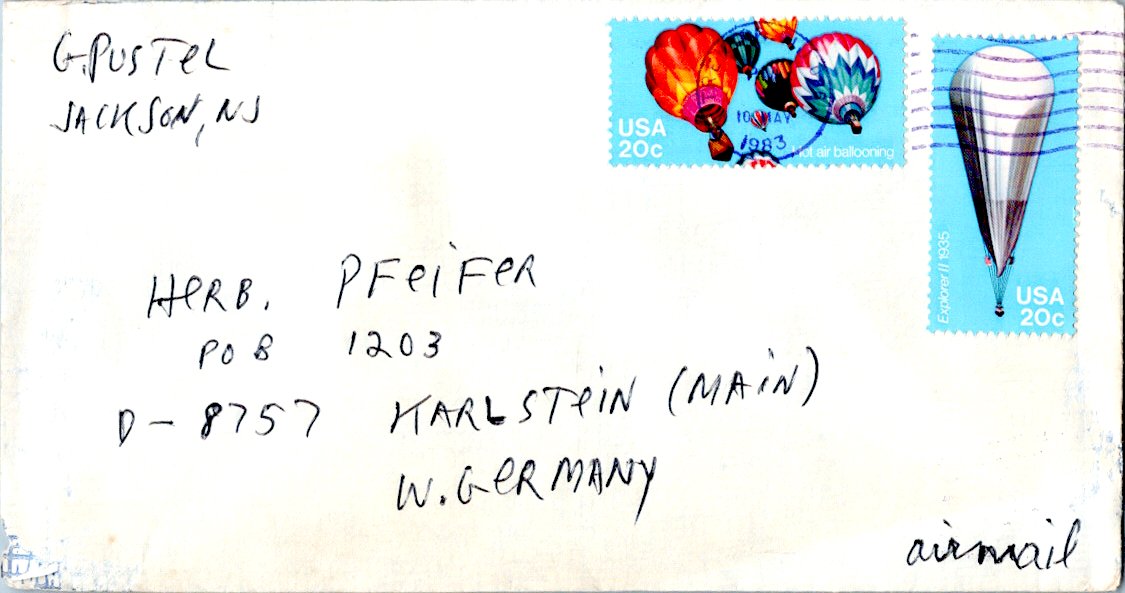 G. PUSTEL
JACKSON, NJ
USA
20c
10 MAY
1983
Hot air ballooning
Explorer II 1935
USA
20c
HERB. PFEIFER
POB 1203
D-8757 KARLSTEIN (MAIN)
W. GERMANY
airmail